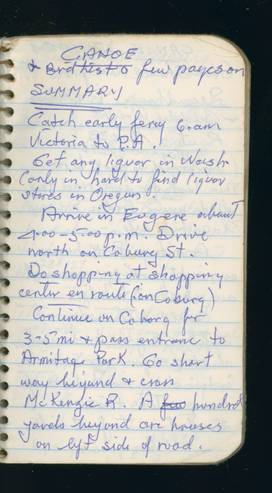 CANOE
& Bird list & few pages on
SUMMARY
Catch early ferry 6 a.m
Victoria to P.A.
Get any liquor in Wash
(only in hard to find liquor
stores in Oregon.
Arrive in Eugene about
4:00-5:00 p.m. Drive
north on Coburg St.
Do shopping at shopping
center en route (on Coburg)
Continue on Coborg for
3-5 mi & pass entrance to
Armitage Park. Go short
way beyond & cross
McKenzie R. A few hundred
yards beyond are houses
on left side of road.